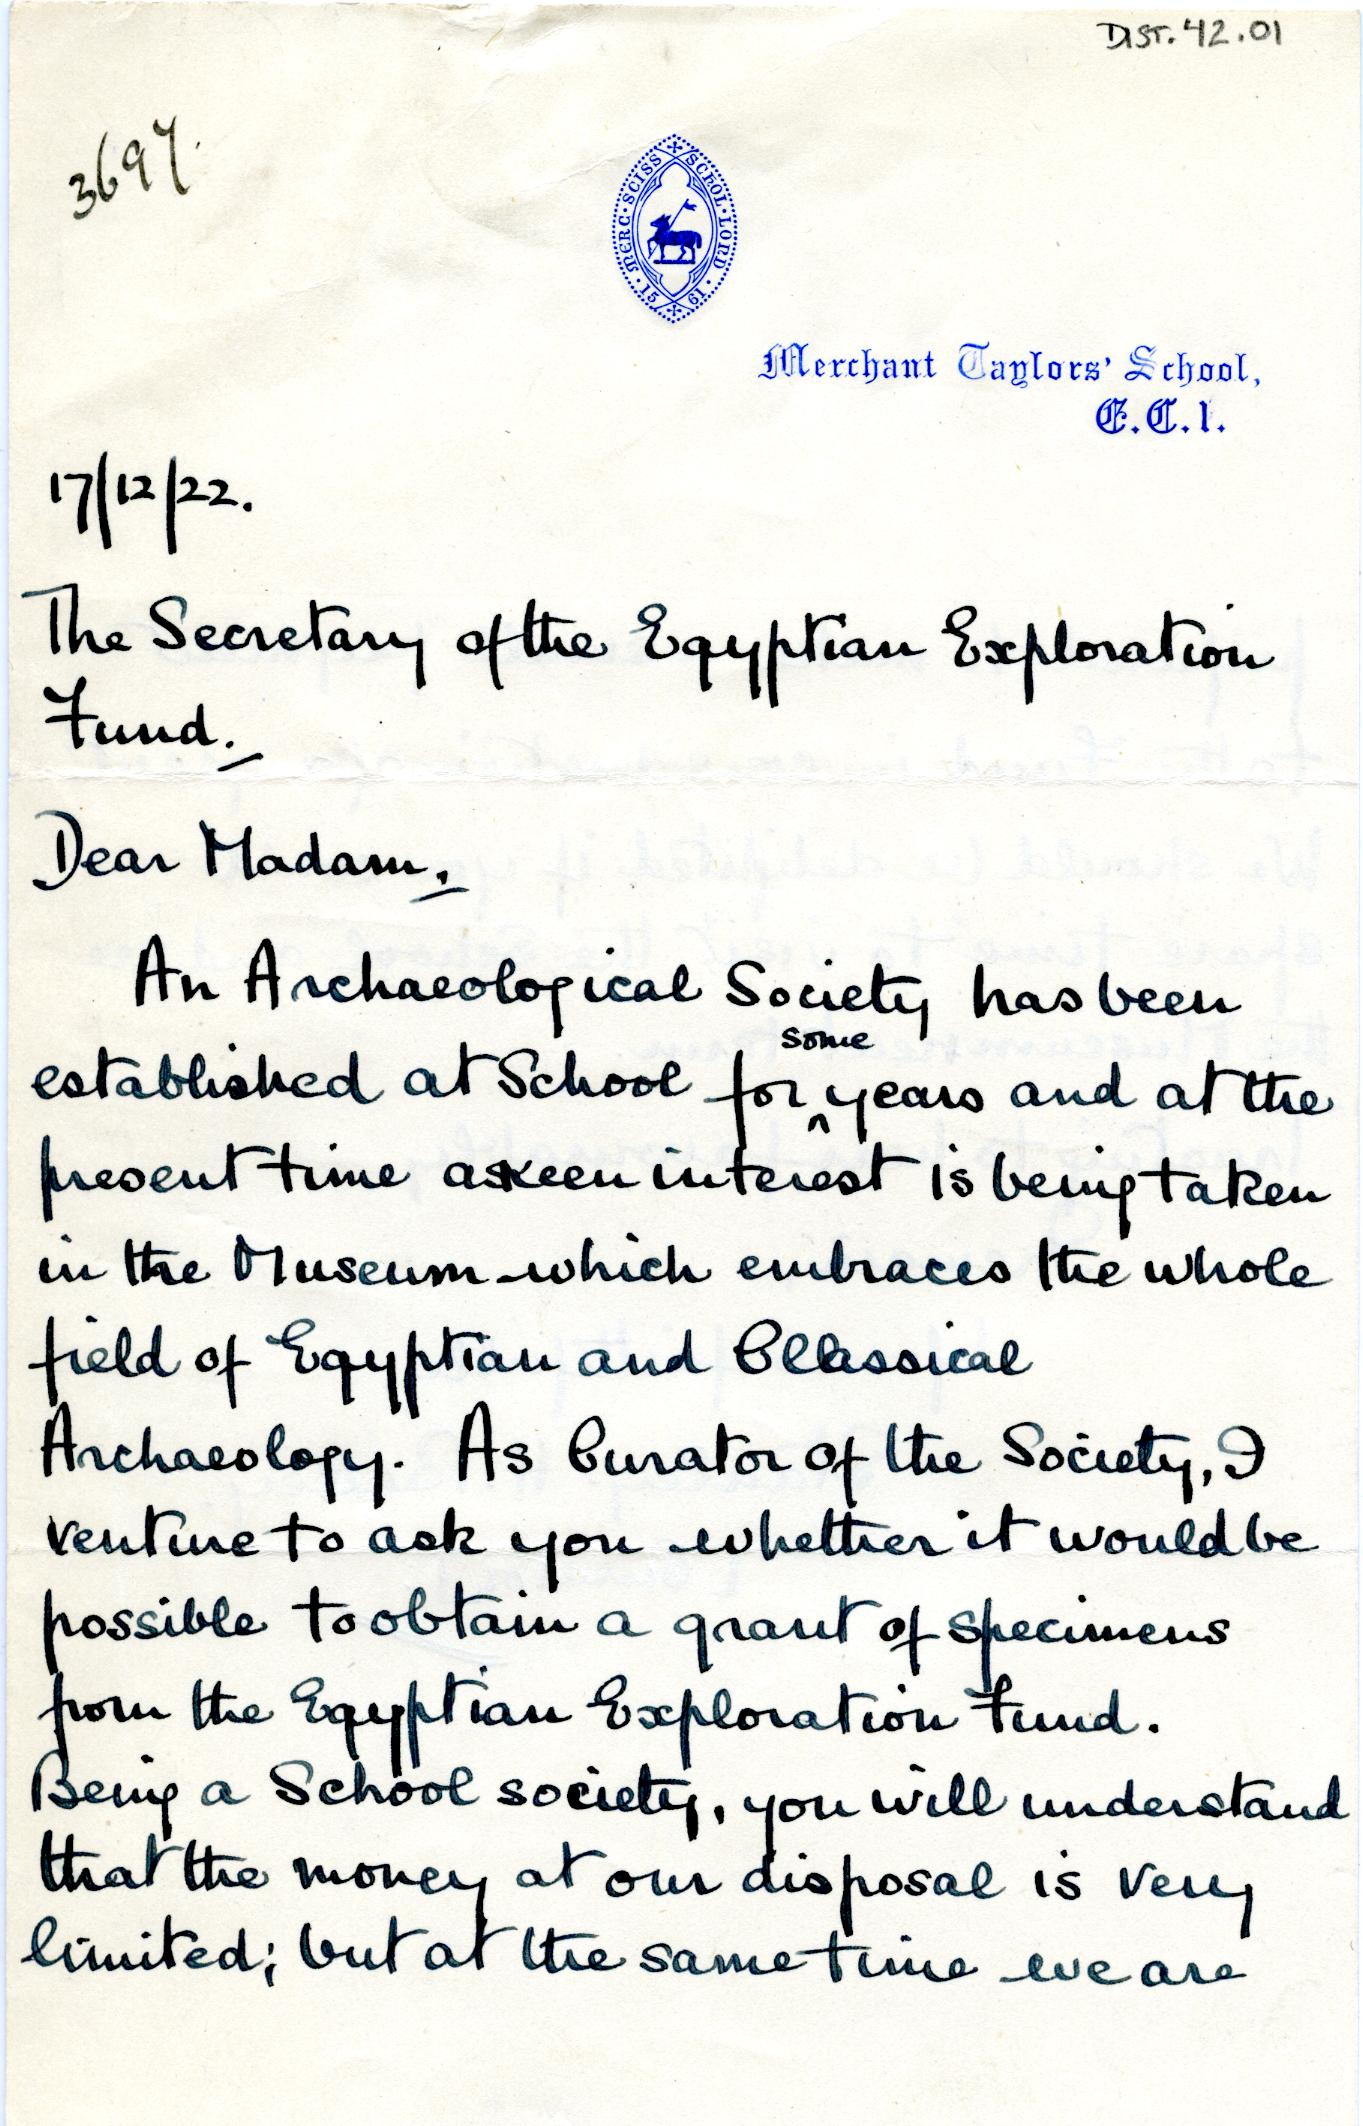 DIST. 42.01
3697.
MERC · SCISS · SCHOL · LOND · 15 61
Merchant Taylors' School,
E.C.1.
17/12/22.
The Secretary of the Egyptian Exploration
Fund.
Dear Madam,
An Archaeological Society has been
established at School for ^some years and at the
present time a keen interest is being taken
in the Museum which embraces the whole
field of Egyptian and Classical
Archaeology. As Curator of the Society, I
venture to ask you whether it would be
possible to obtain a grant of specimens
from the Egyptian Exploration Fund.
Being a School society, you will understand
that the money at our disposal is very
limited; but at the same time we are